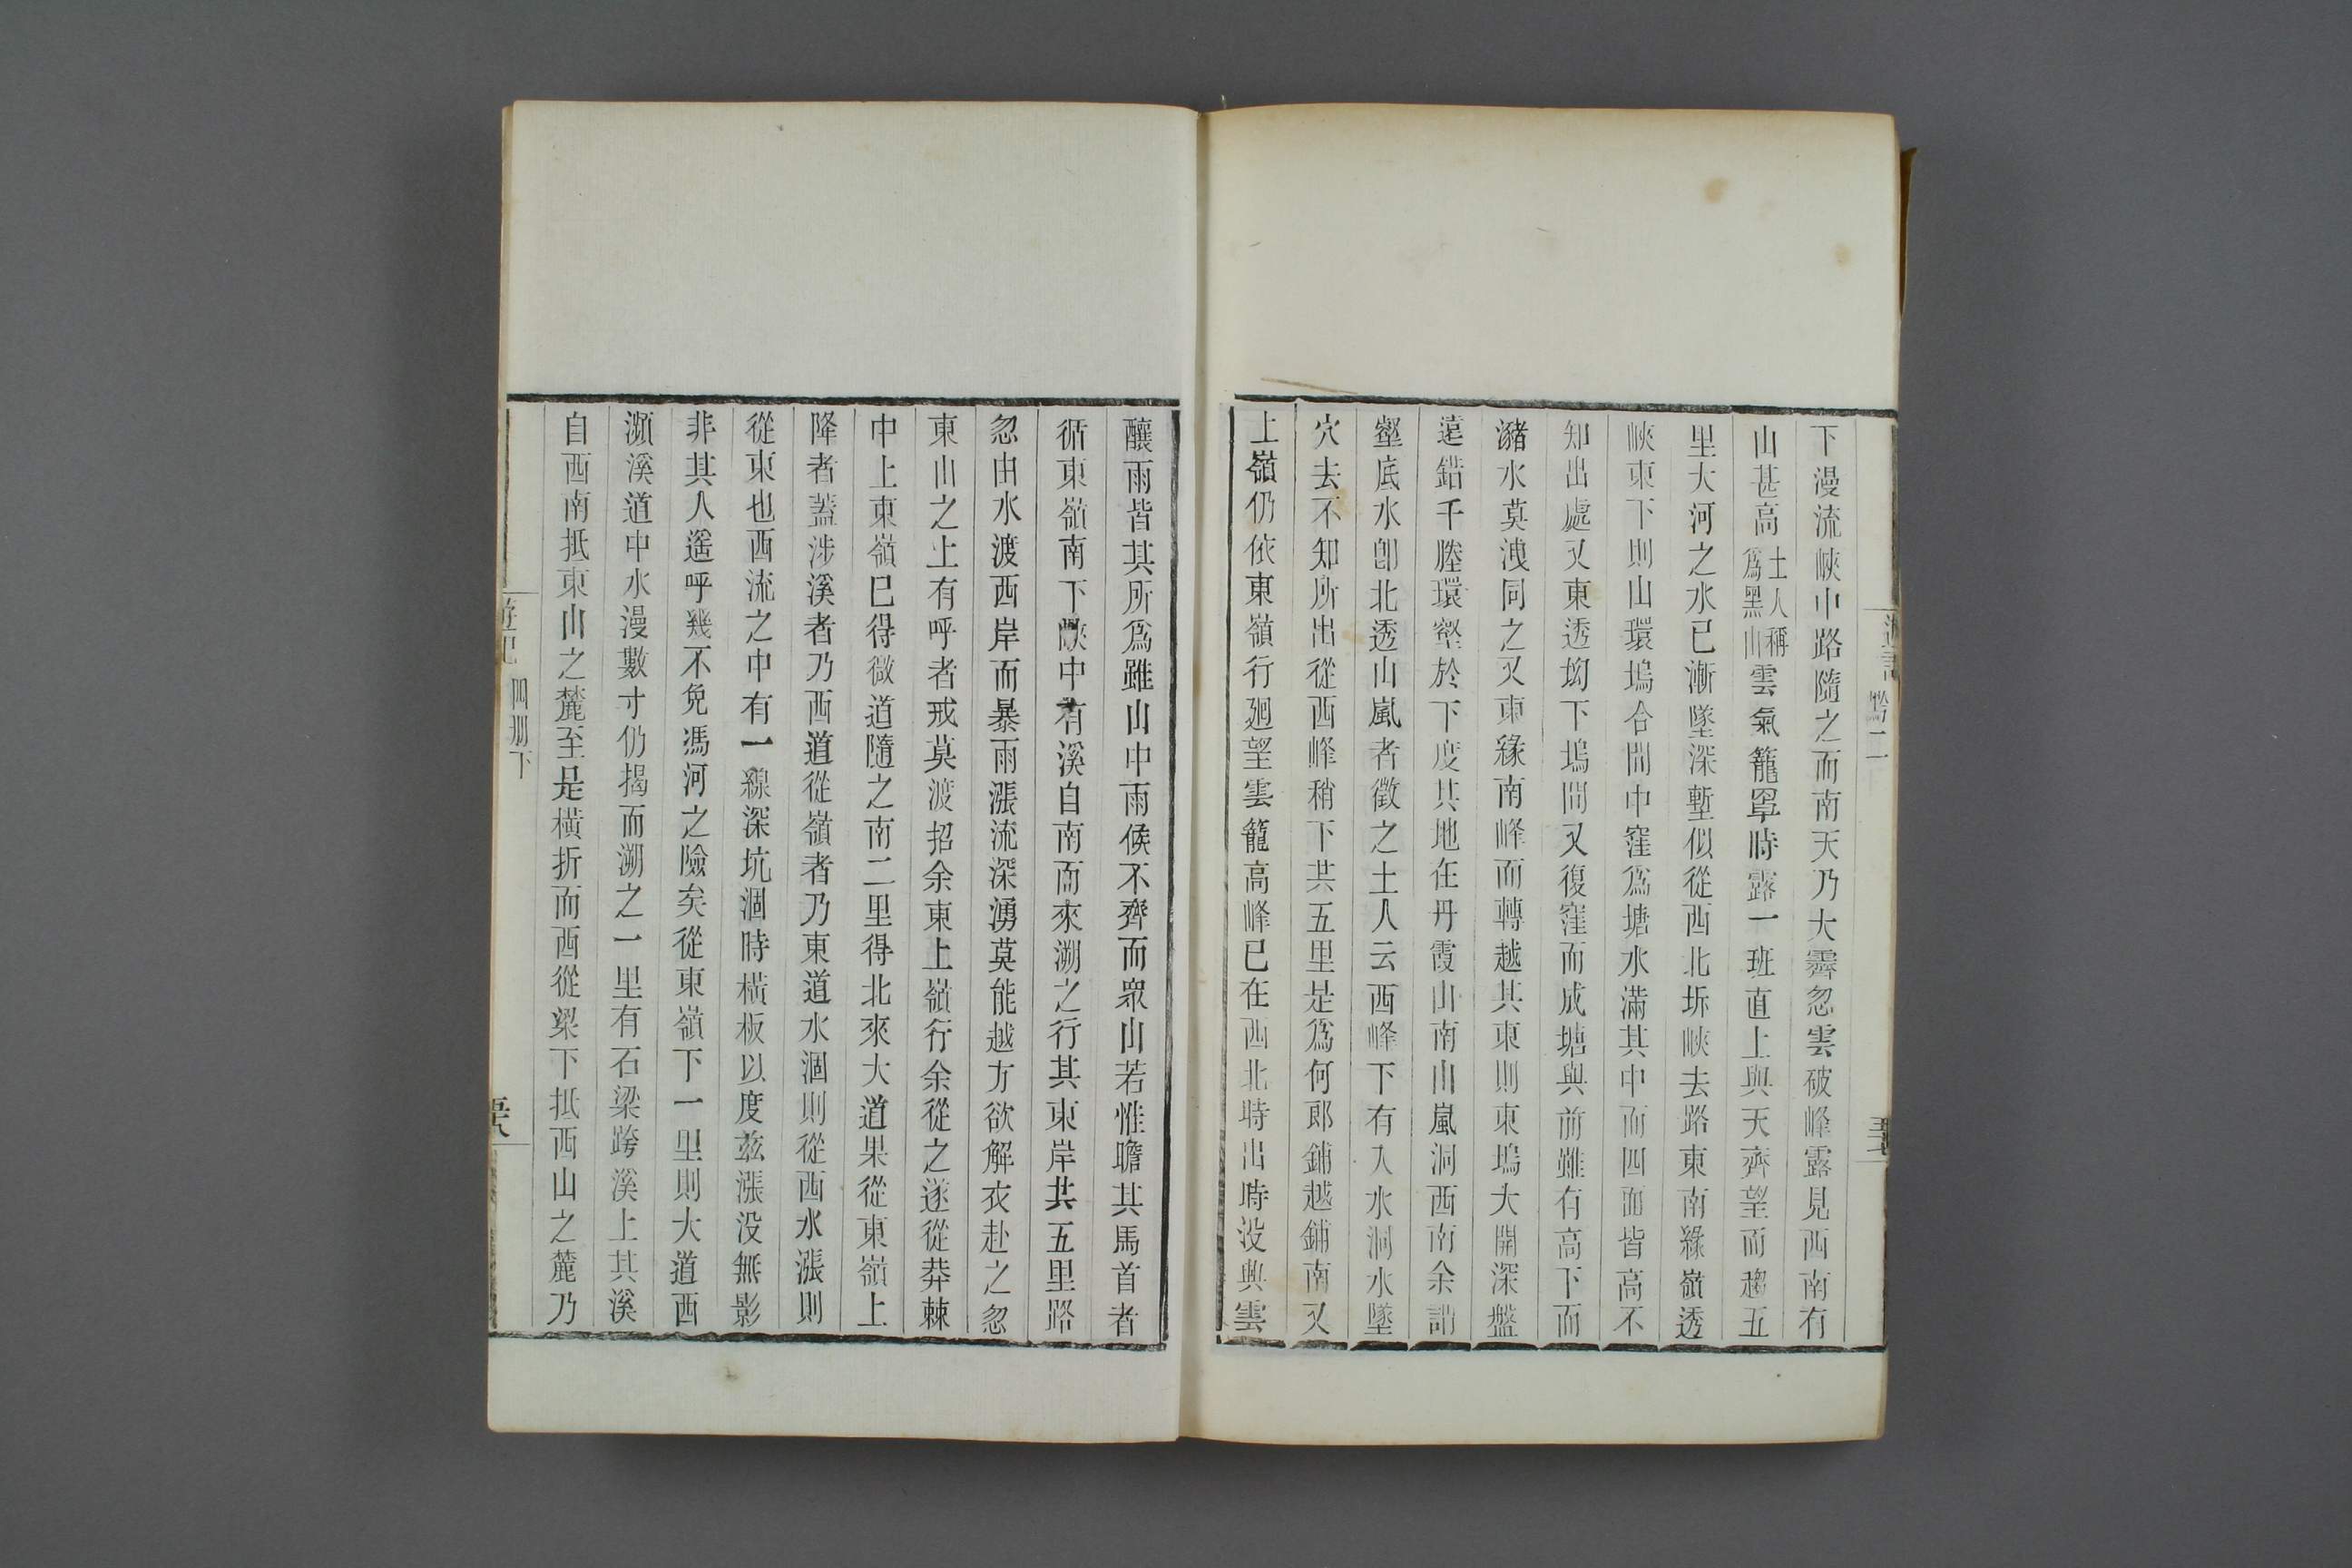 下漫流峽中路隨之而南天乃大霽忽雲破峰露見西南有
山甚高土人稱爲黑山雲氣籠罩時露一班直上與天齊望而趨五
里大河之水已漸墜深塹似從西北坼峽去路東南緣嶺透
峽東下則山環塢合間中窪爲塘水滿其中而四面皆高不
知出處又東透坳下塢間又復窪而成塘與前雖有高下而
瀦水莫洩同之又東緣南峰而轉越其東則東塢大開深盤
遠錯千塍環壑於下度其地在丹霞山南山嵐洞西南余謂
壑底水卽北透山嵐者徵之土人云西峰下有入水洞水墜
穴去不知所出從西峰稍下共五里是爲何郎鋪越鋪南又
上嶺仍依東嶺行廻望雲籠高峰已在西北時出時沒與雲
釀雨皆其所爲雖山中雨候不齊而衆山若惟瞻其馬首者
循東嶺南下峽中有溪自南而來溯之行其東岸共五里路
忽由水渡西岸而暴雨漲流深湧莫能越方欲解衣赴之忽
東山之上有呼者戒莫渡招余東上嶺行余從之遂從莽棘
中上東嶺已得微道隨之南二里得北來大道果從東嶺上
降者蓋涉溪者乃西道從嶺者乃東道水涸則從西水漲則
從東也西流之中有一線深坑涸時橫板以度茲漲没無影
非其人遥呼幾不免馮河之險矣從東嶺下一里則大道西
瀕溪道中水漫數寸仍揭而溯之一里有石梁跨溪上其溪
自西南抵東山之麓至是橫折而西從梁下抵西山之麓乃
遊記 四册下